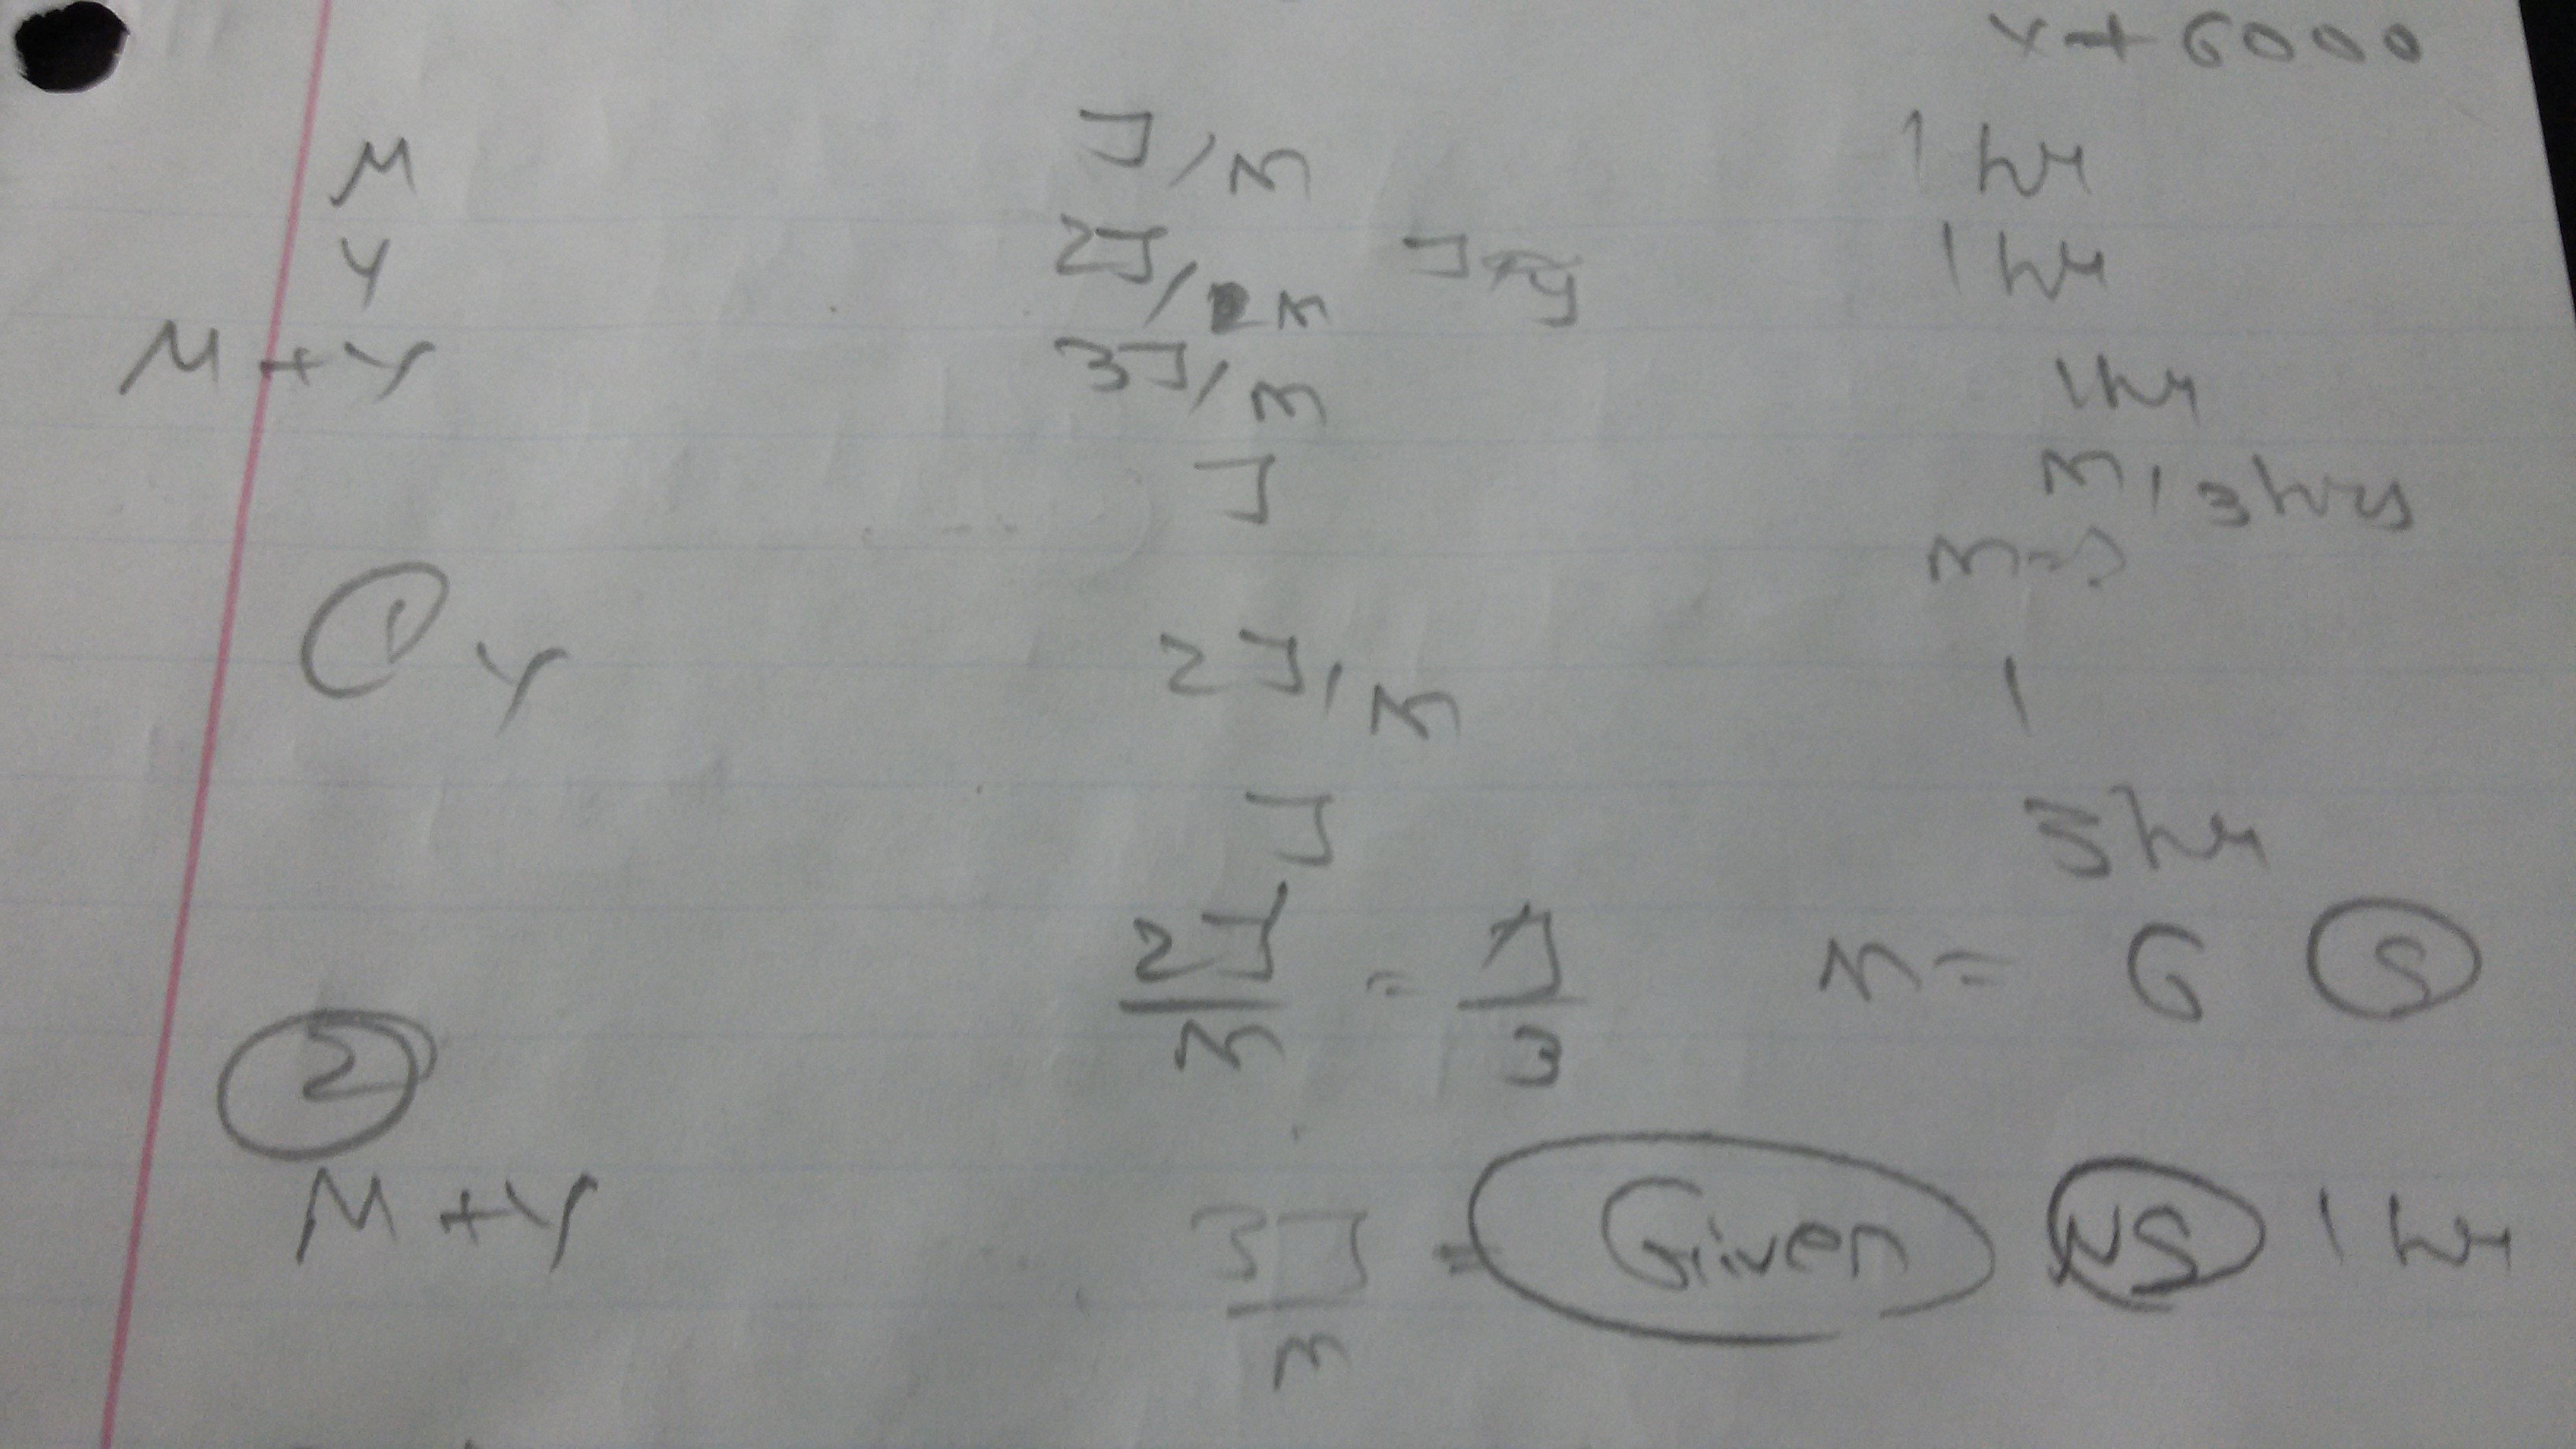 Y + 6000
M J/x 1 hr
Y 2J/x J 1 hr
M + Y 3J/x 1 hr
J x/3 hrs
x = ?
① Y 2J/x 1
J 3 hr
2J/x = J/3 x = 6 Ⓢ
②
M + Y 3J/x = Given NS 1 hr